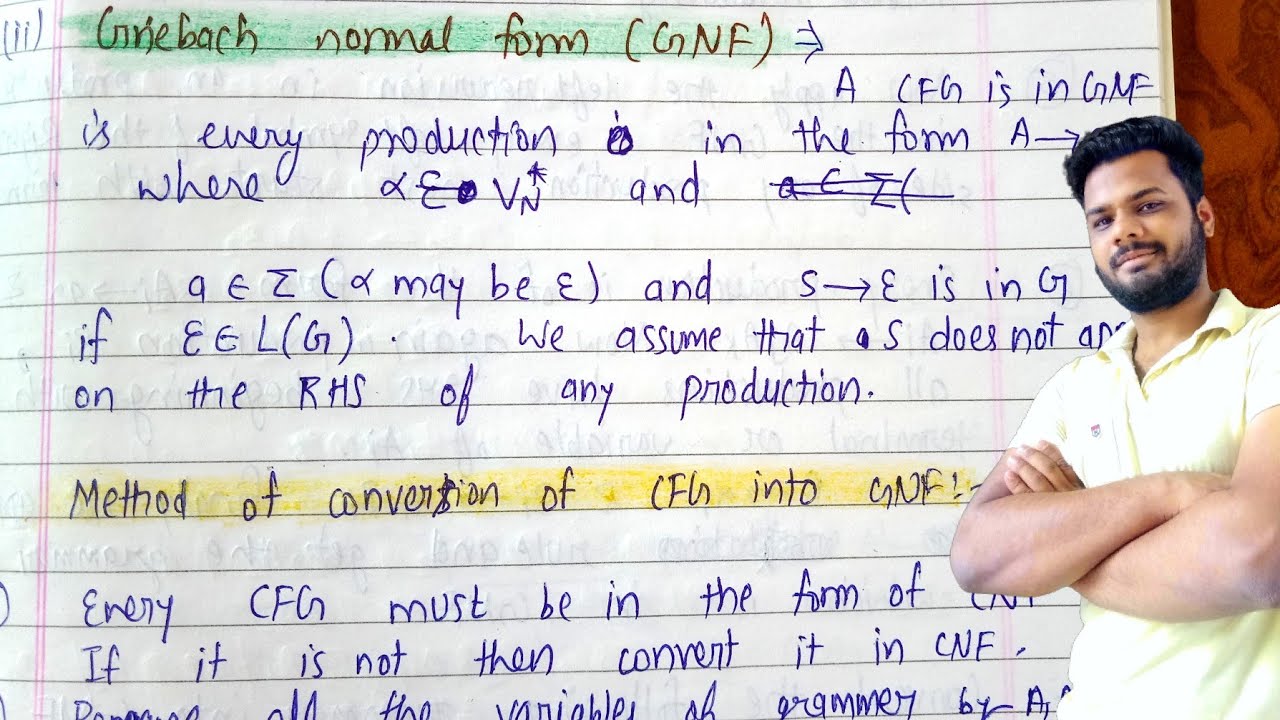 (ii) Griebach normal form (GNF) ⇒
A CFG is in GNF
is every production in the form A→
where α ε V_N* and a ∈ Σ(
a ∈ Σ (α may be ε) and S→ε is in G
if ε ∈ L(G). We assume that S does not
on the RHS of any production.
Method of conversion of CFG into GNF:-
Every CFG must be in the form of CNF
If it is not then convert it in CNF.
all the variables of grammer by A